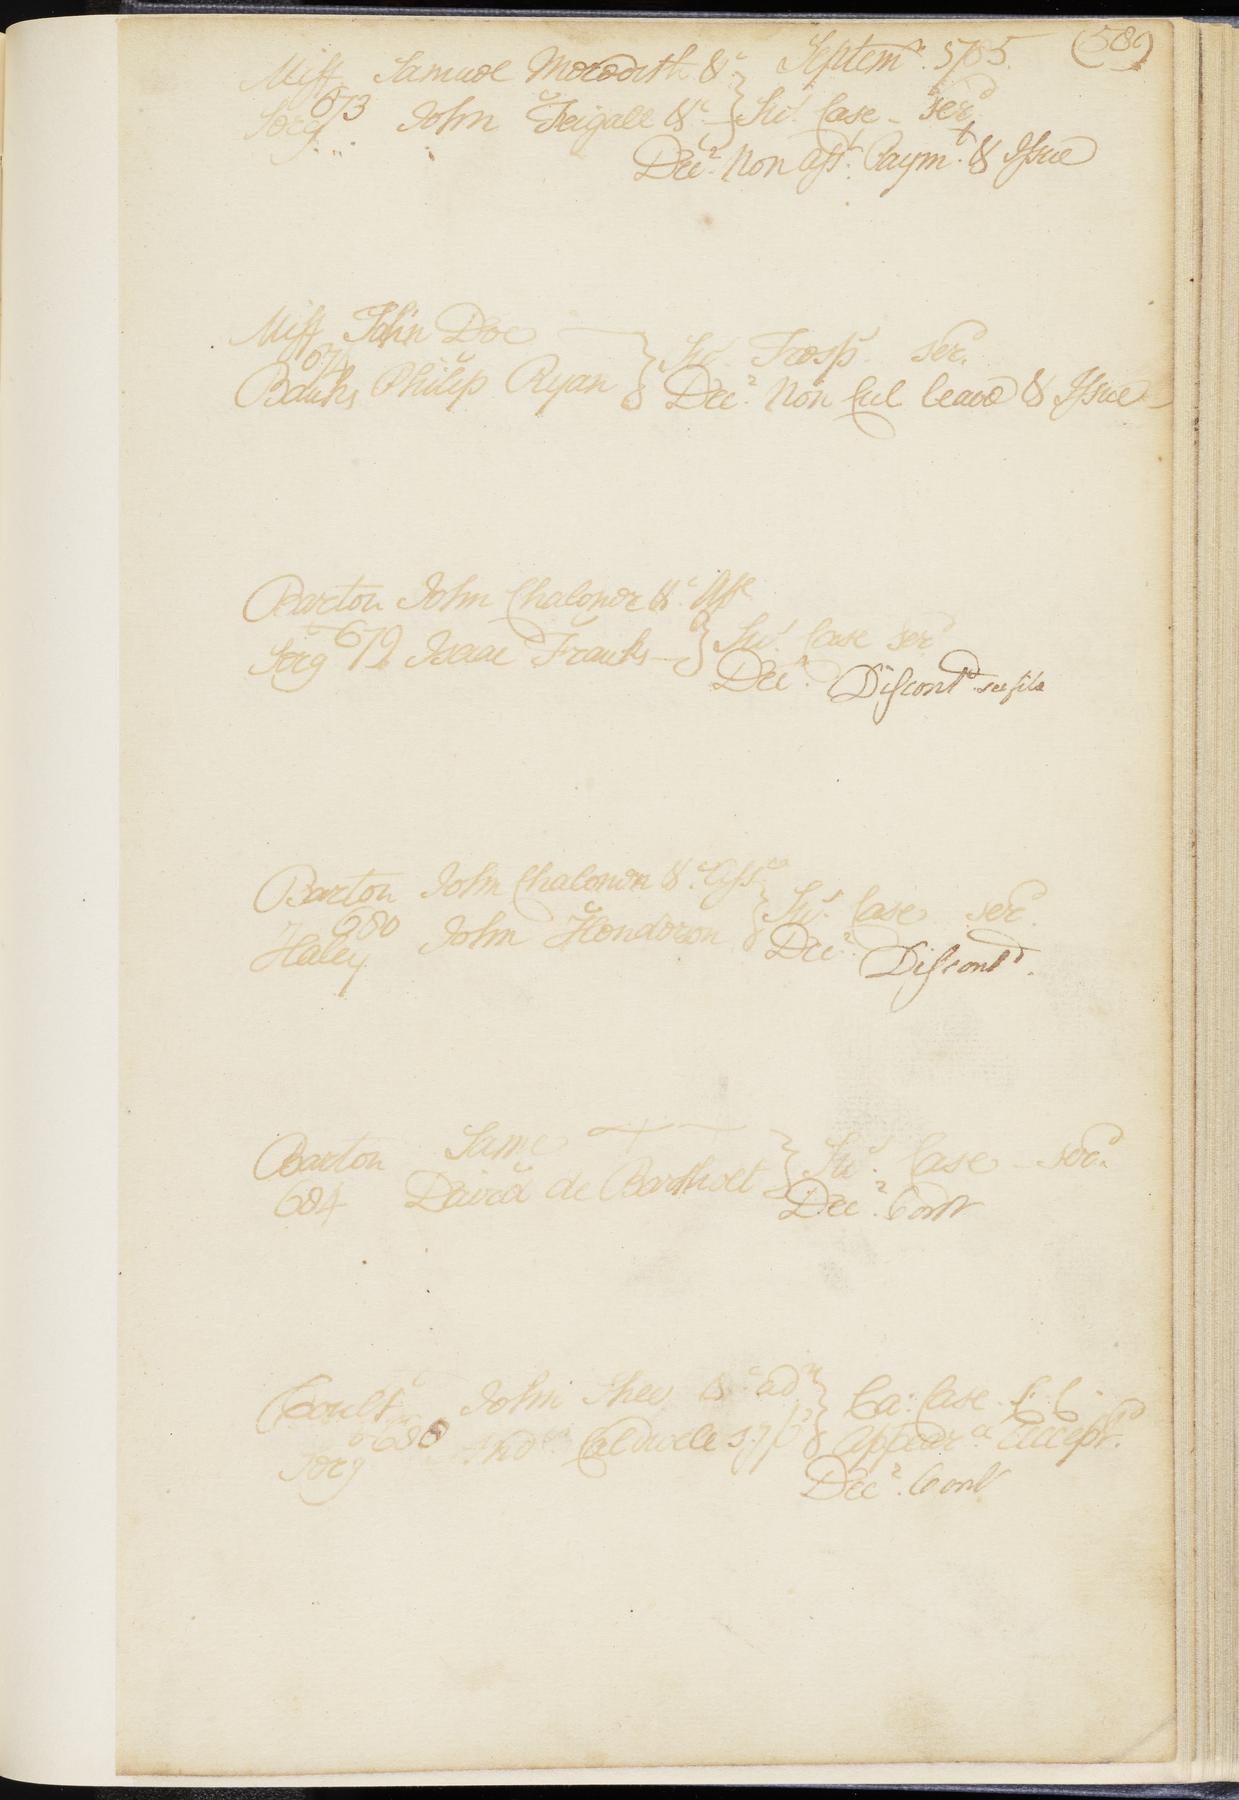 Miff Samuel Meredith &c Septemr 1785. (589)
Serg 673 John Feigale &c } Sus. Case - serd
Decr. Non asst. Paymt. & Issue
Miff John Doe
674
Banks Philip Ryan } Sus. Tresps. serd.
Decr. Non Cul leave & Issue
Barton John Chaloner &c Asse
Serg 679 Isaac Franks } Sus. Case serd
Decr. Discontd see file
Barton John Chaloner &c Asse
680
Haley John Henderson } Sus. Case serd.
Decr. Discontd.
Barton Same
684 David de Bartholt } Sus. Case - serd.
Decr. Contr
Coults John Shee &c adr
688
Serg Andw Caldwell } Ca: Case C. C.
appeara. Accepd.
Decr. Cont